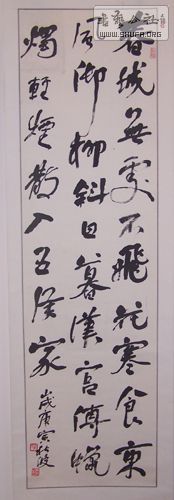 春城無處不飛花寒食東
風御柳斜日暮漢宮傳蠟
燭輕煙散入五侯家
歲庚寅
WWW.SHUFA.ORG